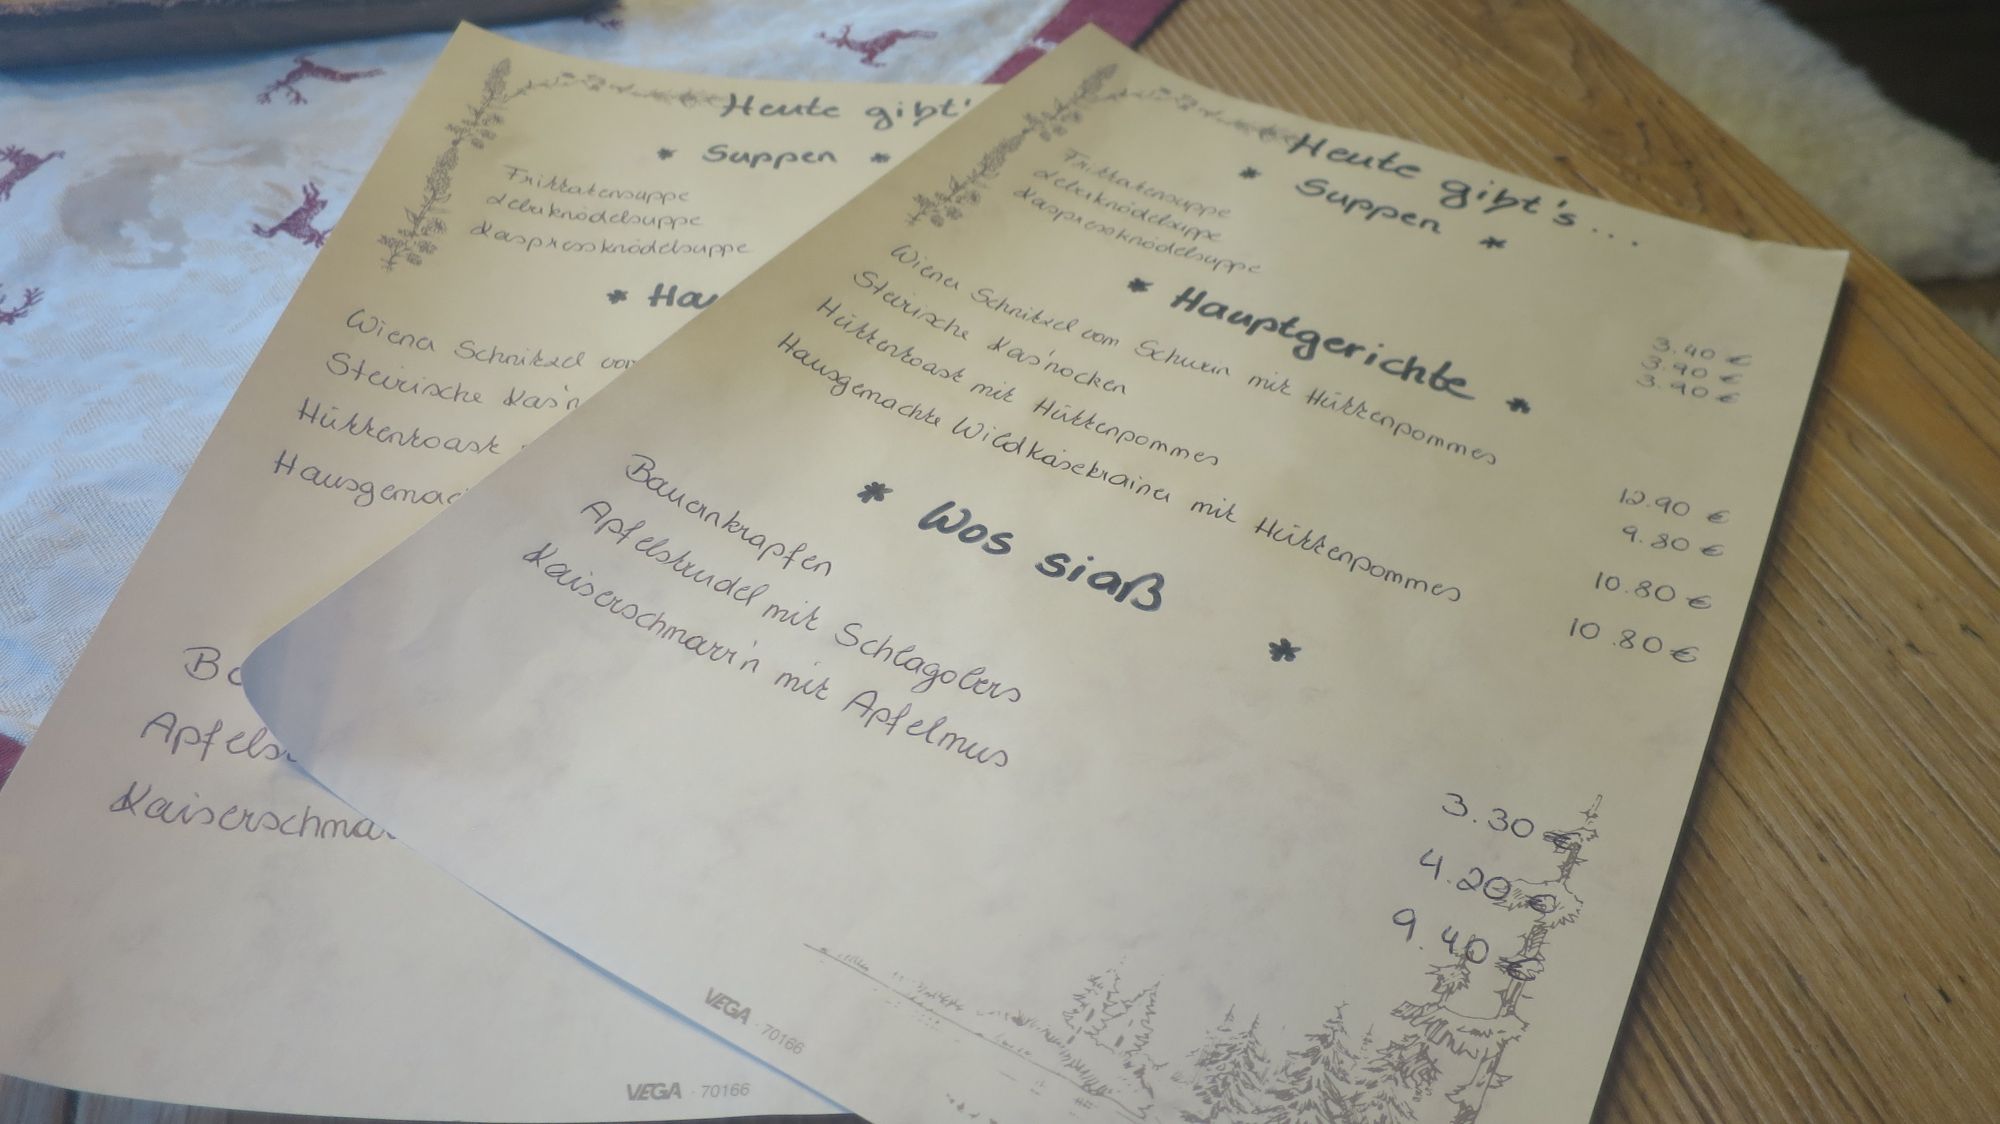 Heute gibt'
* Suppen *
Frittatensuppe
Leberknödelsuppe
Kaspressknödelsuppe
* Hau
Wiener Schnitzel vom
Steirische Kas'n
Hüttentoast
Hausgemac
Ba
Apfels
Kaiserschmar
VEGA · 70166
Heute gibt's...
* Suppen *
Frittatensuppe 3.40 €
Leberknödelsuppe 3.90 €
Kaspressknödelsuppe 3.90 €
* Hauptgerichte *
Wiener Schnitzel vom Schwein mit Hüttenpommes 12.90 €
Steirische Kas'nocken 9.80 €
Hüttentoast mit Hüttenpommes 10.80 €
Hausgemachte Wildkäsekrainer mit Hüttenpommes 10.80 €
* Wos siaß *
Bauernkrapfen 3.30 €
Apfelstrudel mit Schlagobers 4.20 €
Kaiserschmarr'n mit Apfelmus 9.40 €
VEGA · 70166